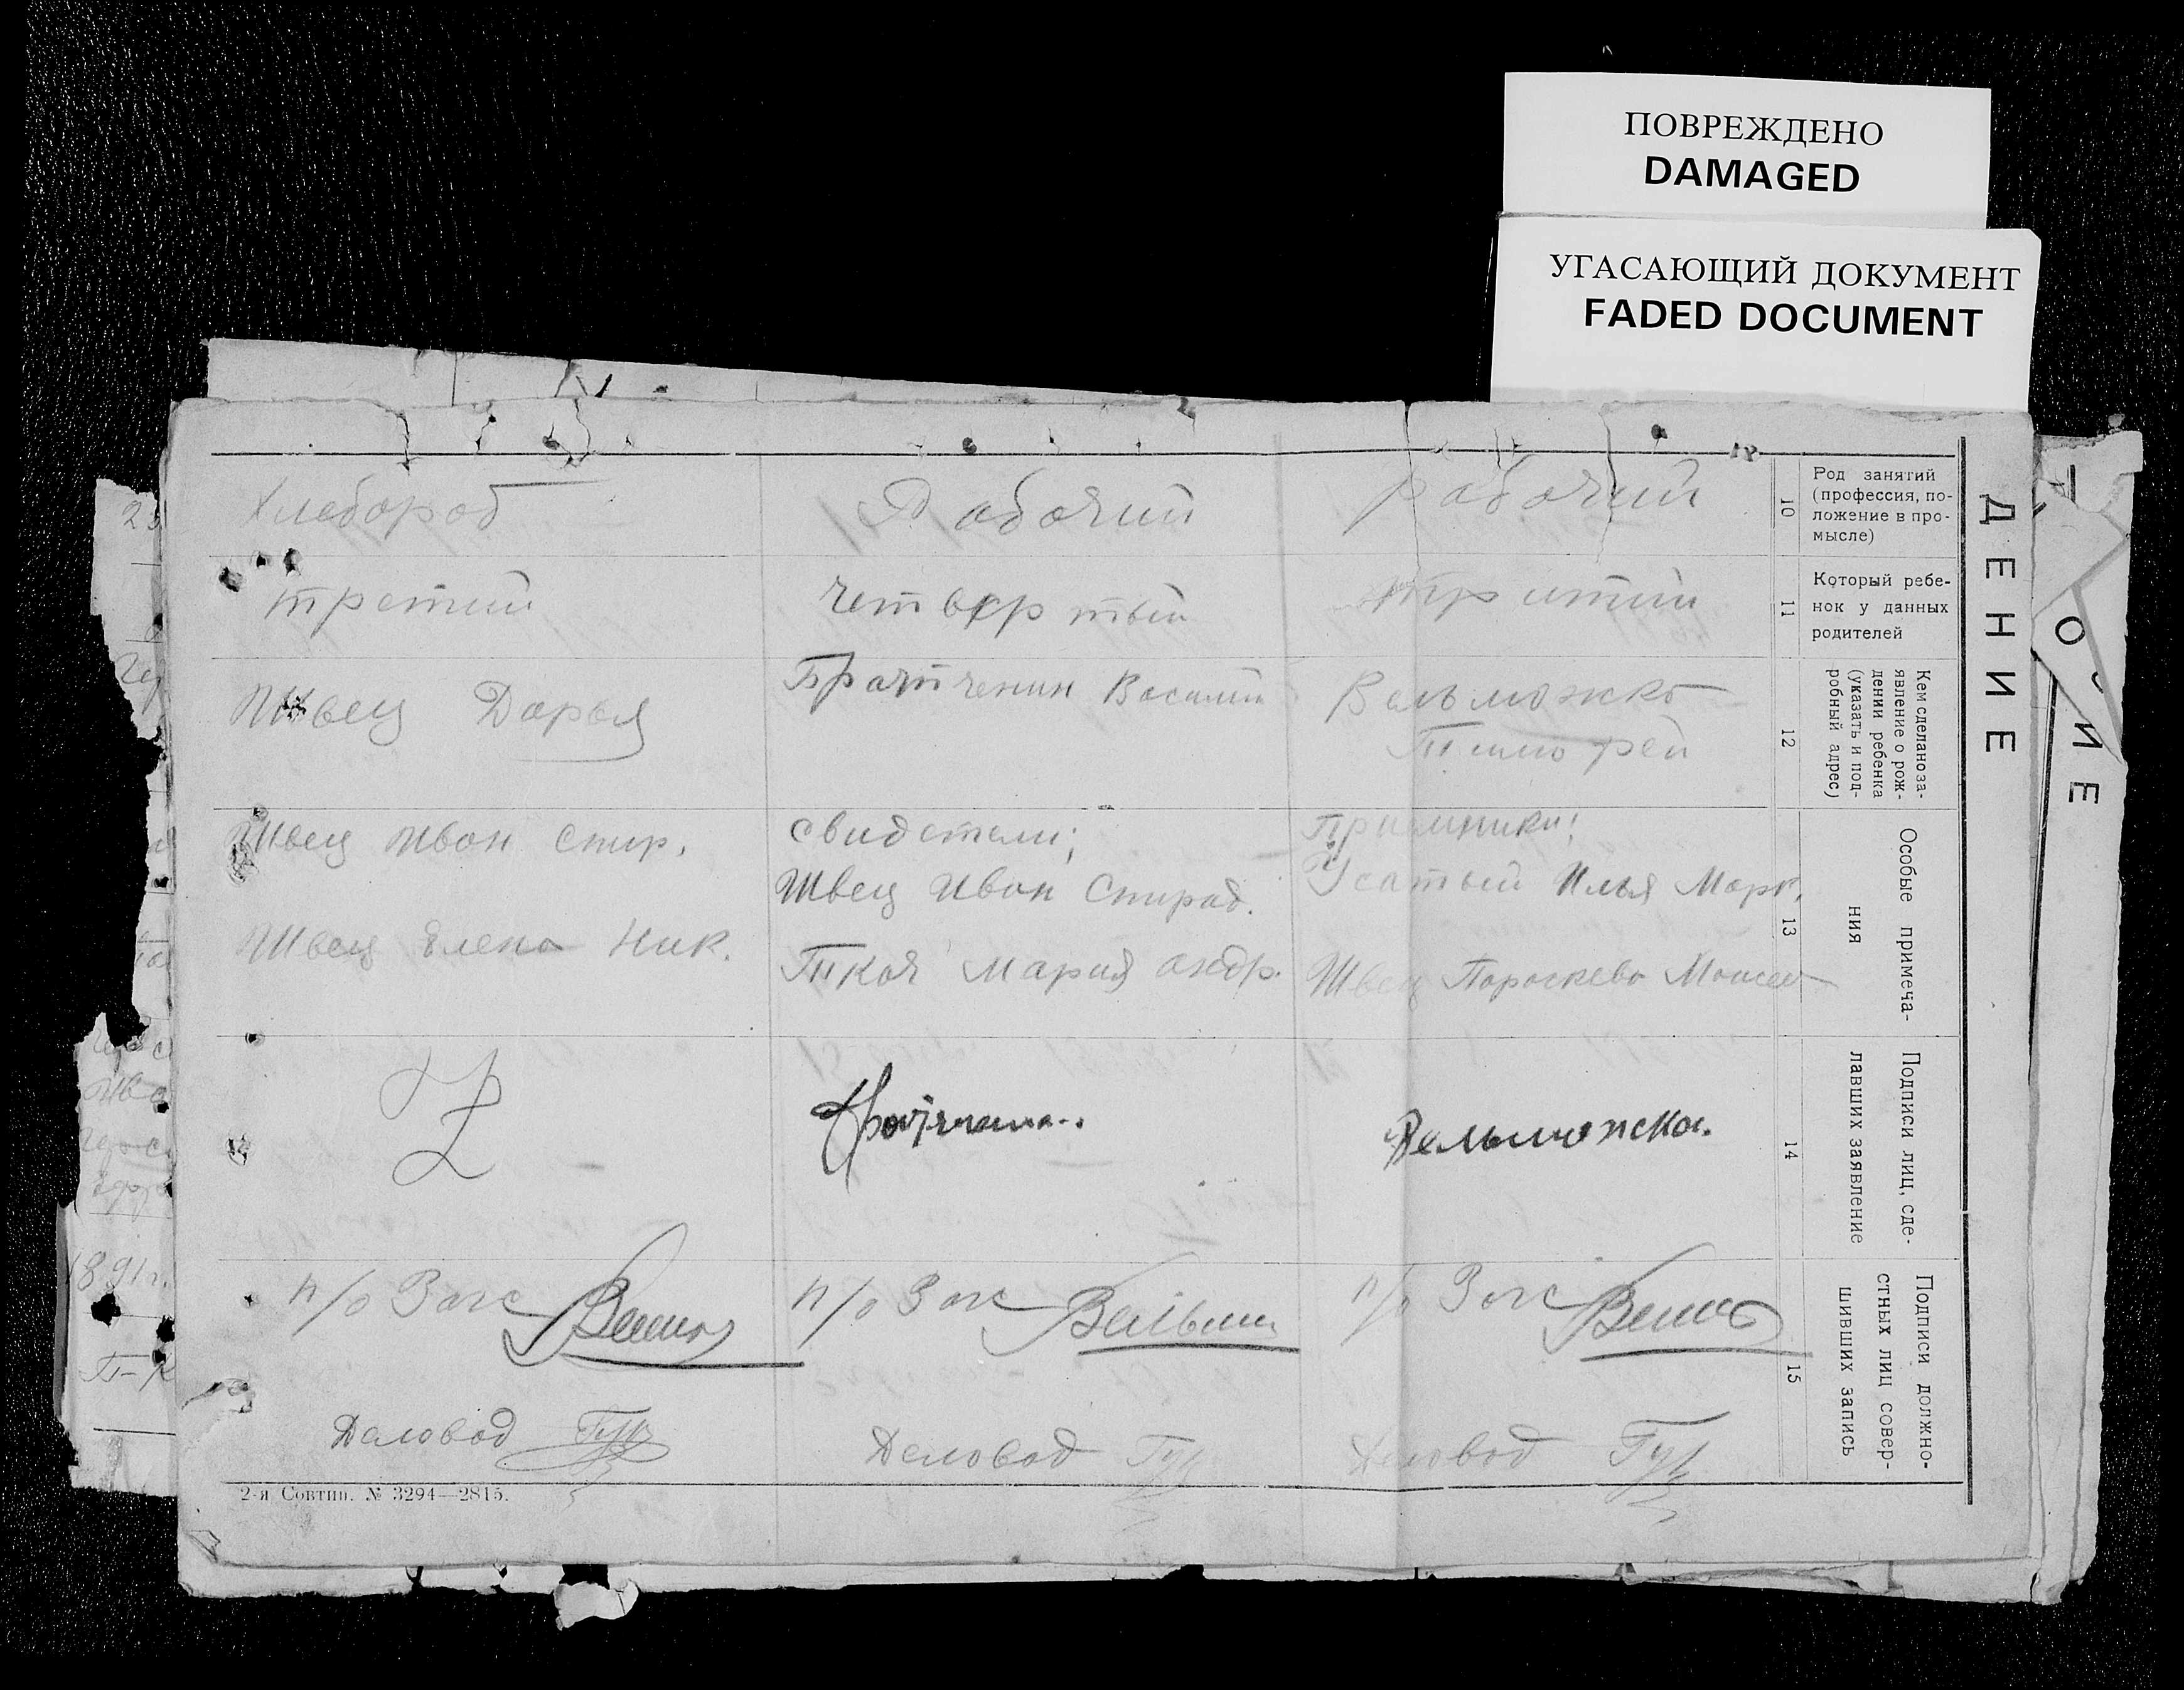 ПОВРЕЖДЕНО
DAMAGED
УГАСАЮЩИЙ ДОКУМЕНТ
FADED DOCUMENT
Хлебороб
Рабочий
рабочий
10
Род занятий
(профессия, по-
ложение в про-
мысле)
третий
четвертый
тритий
11
Который ребе-
нок у данных
родителей
Швец Дарья
Василий
Вельможко
Тимофей
12
Кем сделано за-
явление о рож-
дении ребенка
(указать и под-
робный адрес)
Швец Иван Спир.
Швец Елена Ник.
свидетели;
Швец Иван Спирид.
Ткач Мария андр.
Приемники:
Усатый Илья Марк.
Швец Пораскева Моисее
13
Особые примеча-
ния
14
Подписи лиц, сде-
лавших заявление
п/о Загс
п/о Загс
п/о Загс
Деловод
Деловод
Деловод
15
Подписи должно-
стных лиц совер-
шивших запись
ДЕНИЕ
О
ИЕ
2-я Совтип. № 3294—2815.
1891г.